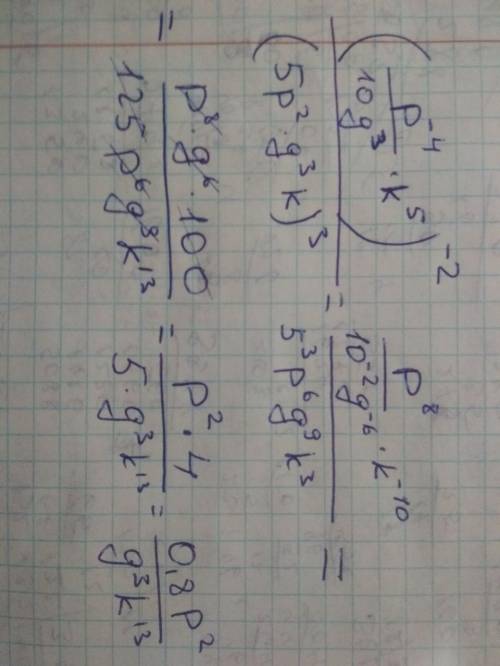 (p⁻⁴/10g³ · k⁵)⁻² / (5p² · g³k)³ = p⁸/10⁻²g⁻⁶ · k⁻¹⁰ / 5³p⁶g⁹k³ =
= p⁸ · g⁶ · 100 / 125p⁶g⁹k¹³ = p² · 4 / 5 · g³k¹³ = 0,8p² / g³k¹³